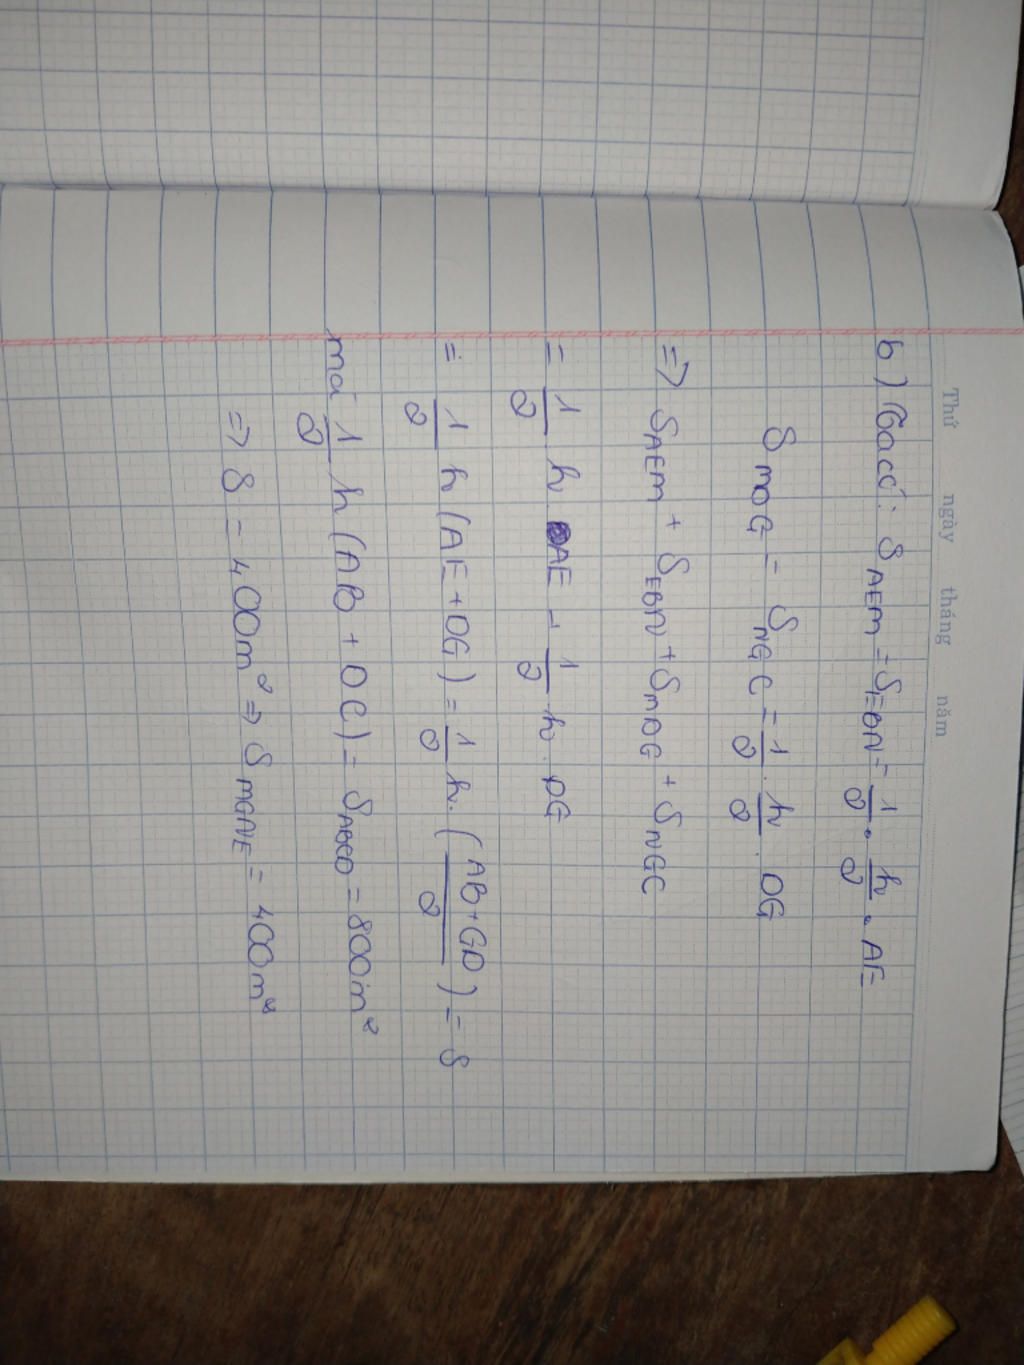 Thứ ngày tháng năm
b) Ta có: S AEM = S EBN = 1/2 . h/2 . AE
S MDG = S NGC = 1/2 . h/2 . DG
=> S AEM + S EBN + S MDG + S NGC
= 1/2 h . AE + 1/2 h . DG
= 1/2 h (AE + DG) = 1/2 h . (AB + GD / 2) = S
mà 1/2 h (AB + DC) = S ABCD = 800m²
=> S = 400m² => S MGNE = 400m²